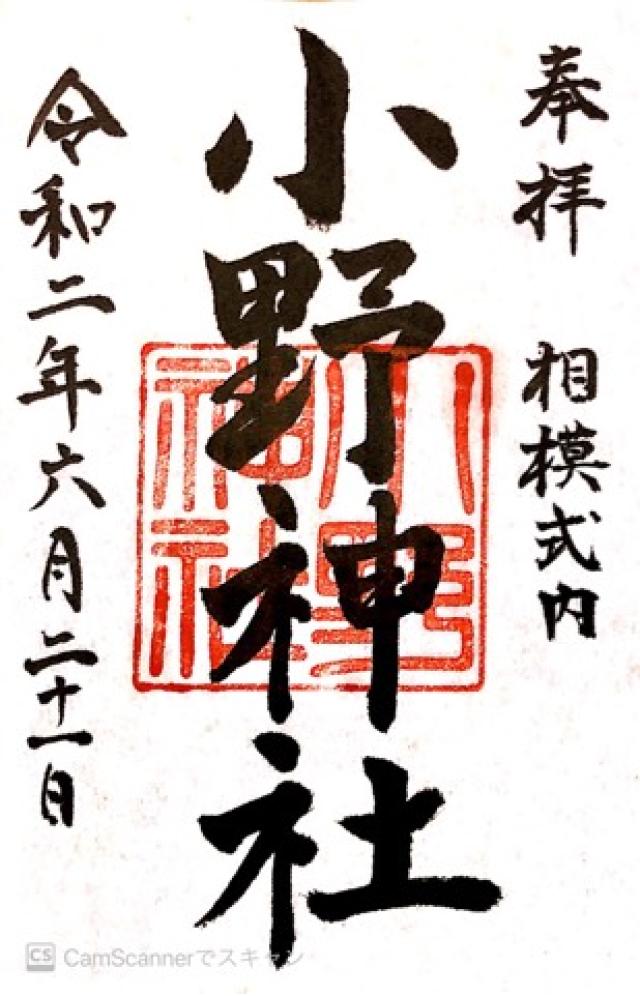 奉拝 相模式内
小野神社
小野神社
令和二年六月二十一日
CS CamScannerでスキャン